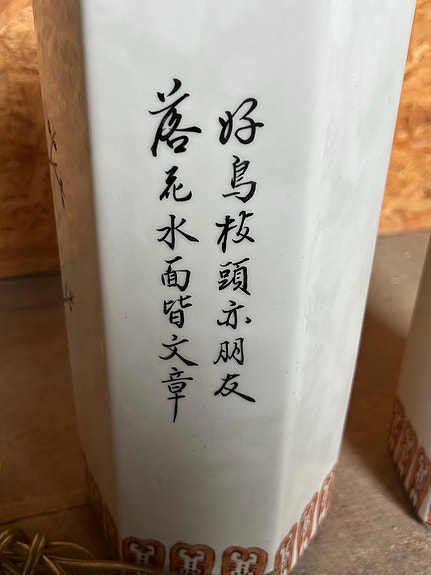 好鳥枝頭亦朋友
落花水面皆文章